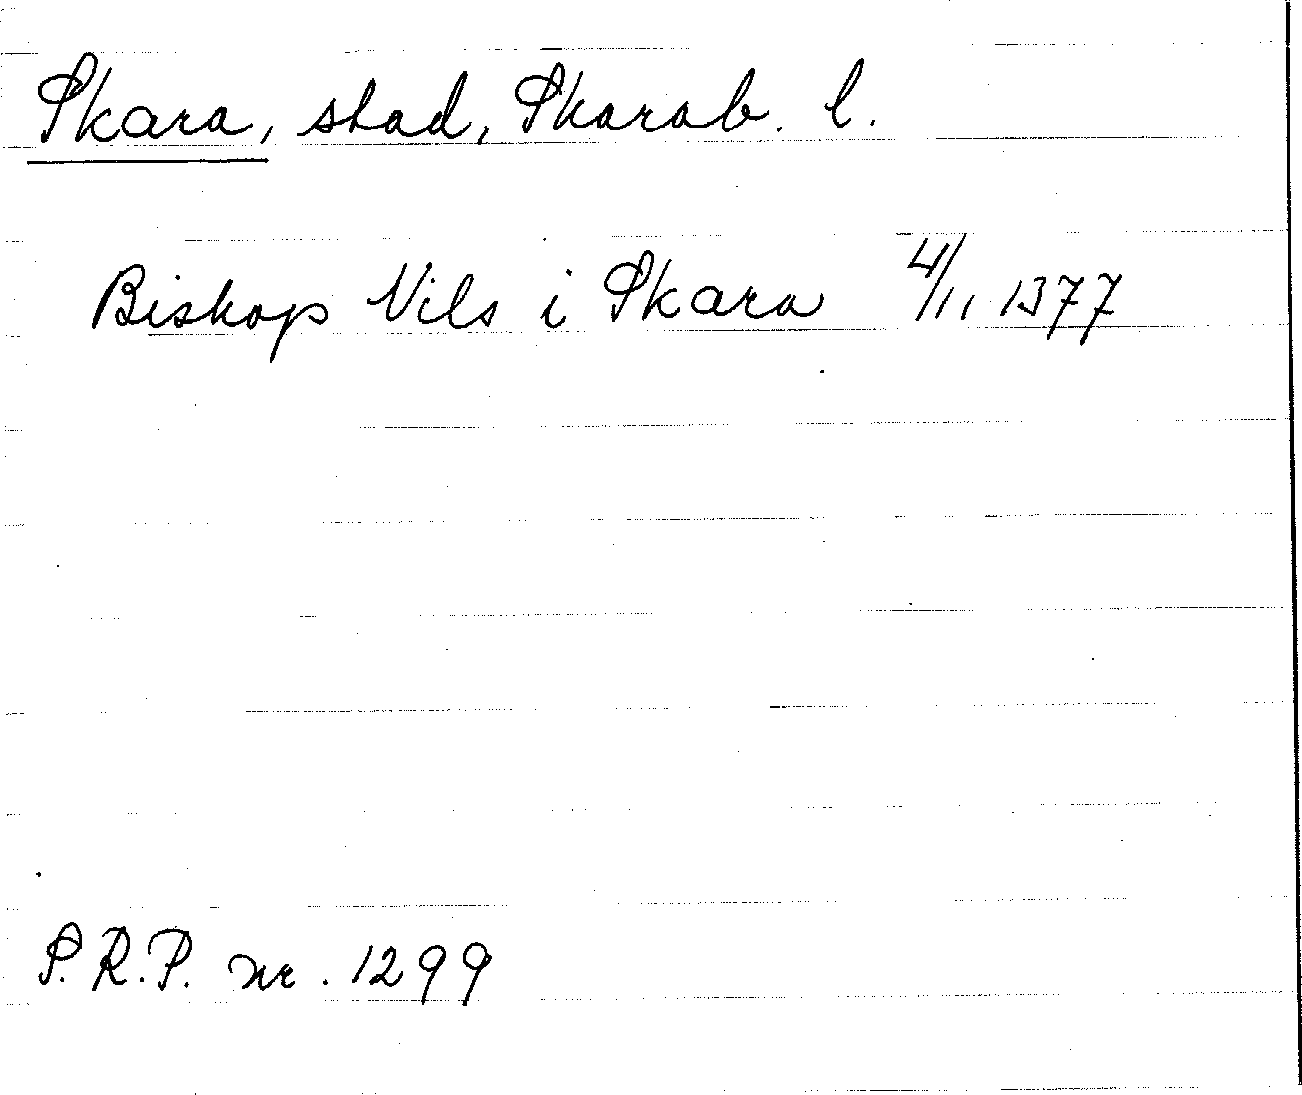 Skara, stad, Skarab. l.
Biskop Nils i Skara 4/11 1377
S.R.P. nr. 1299